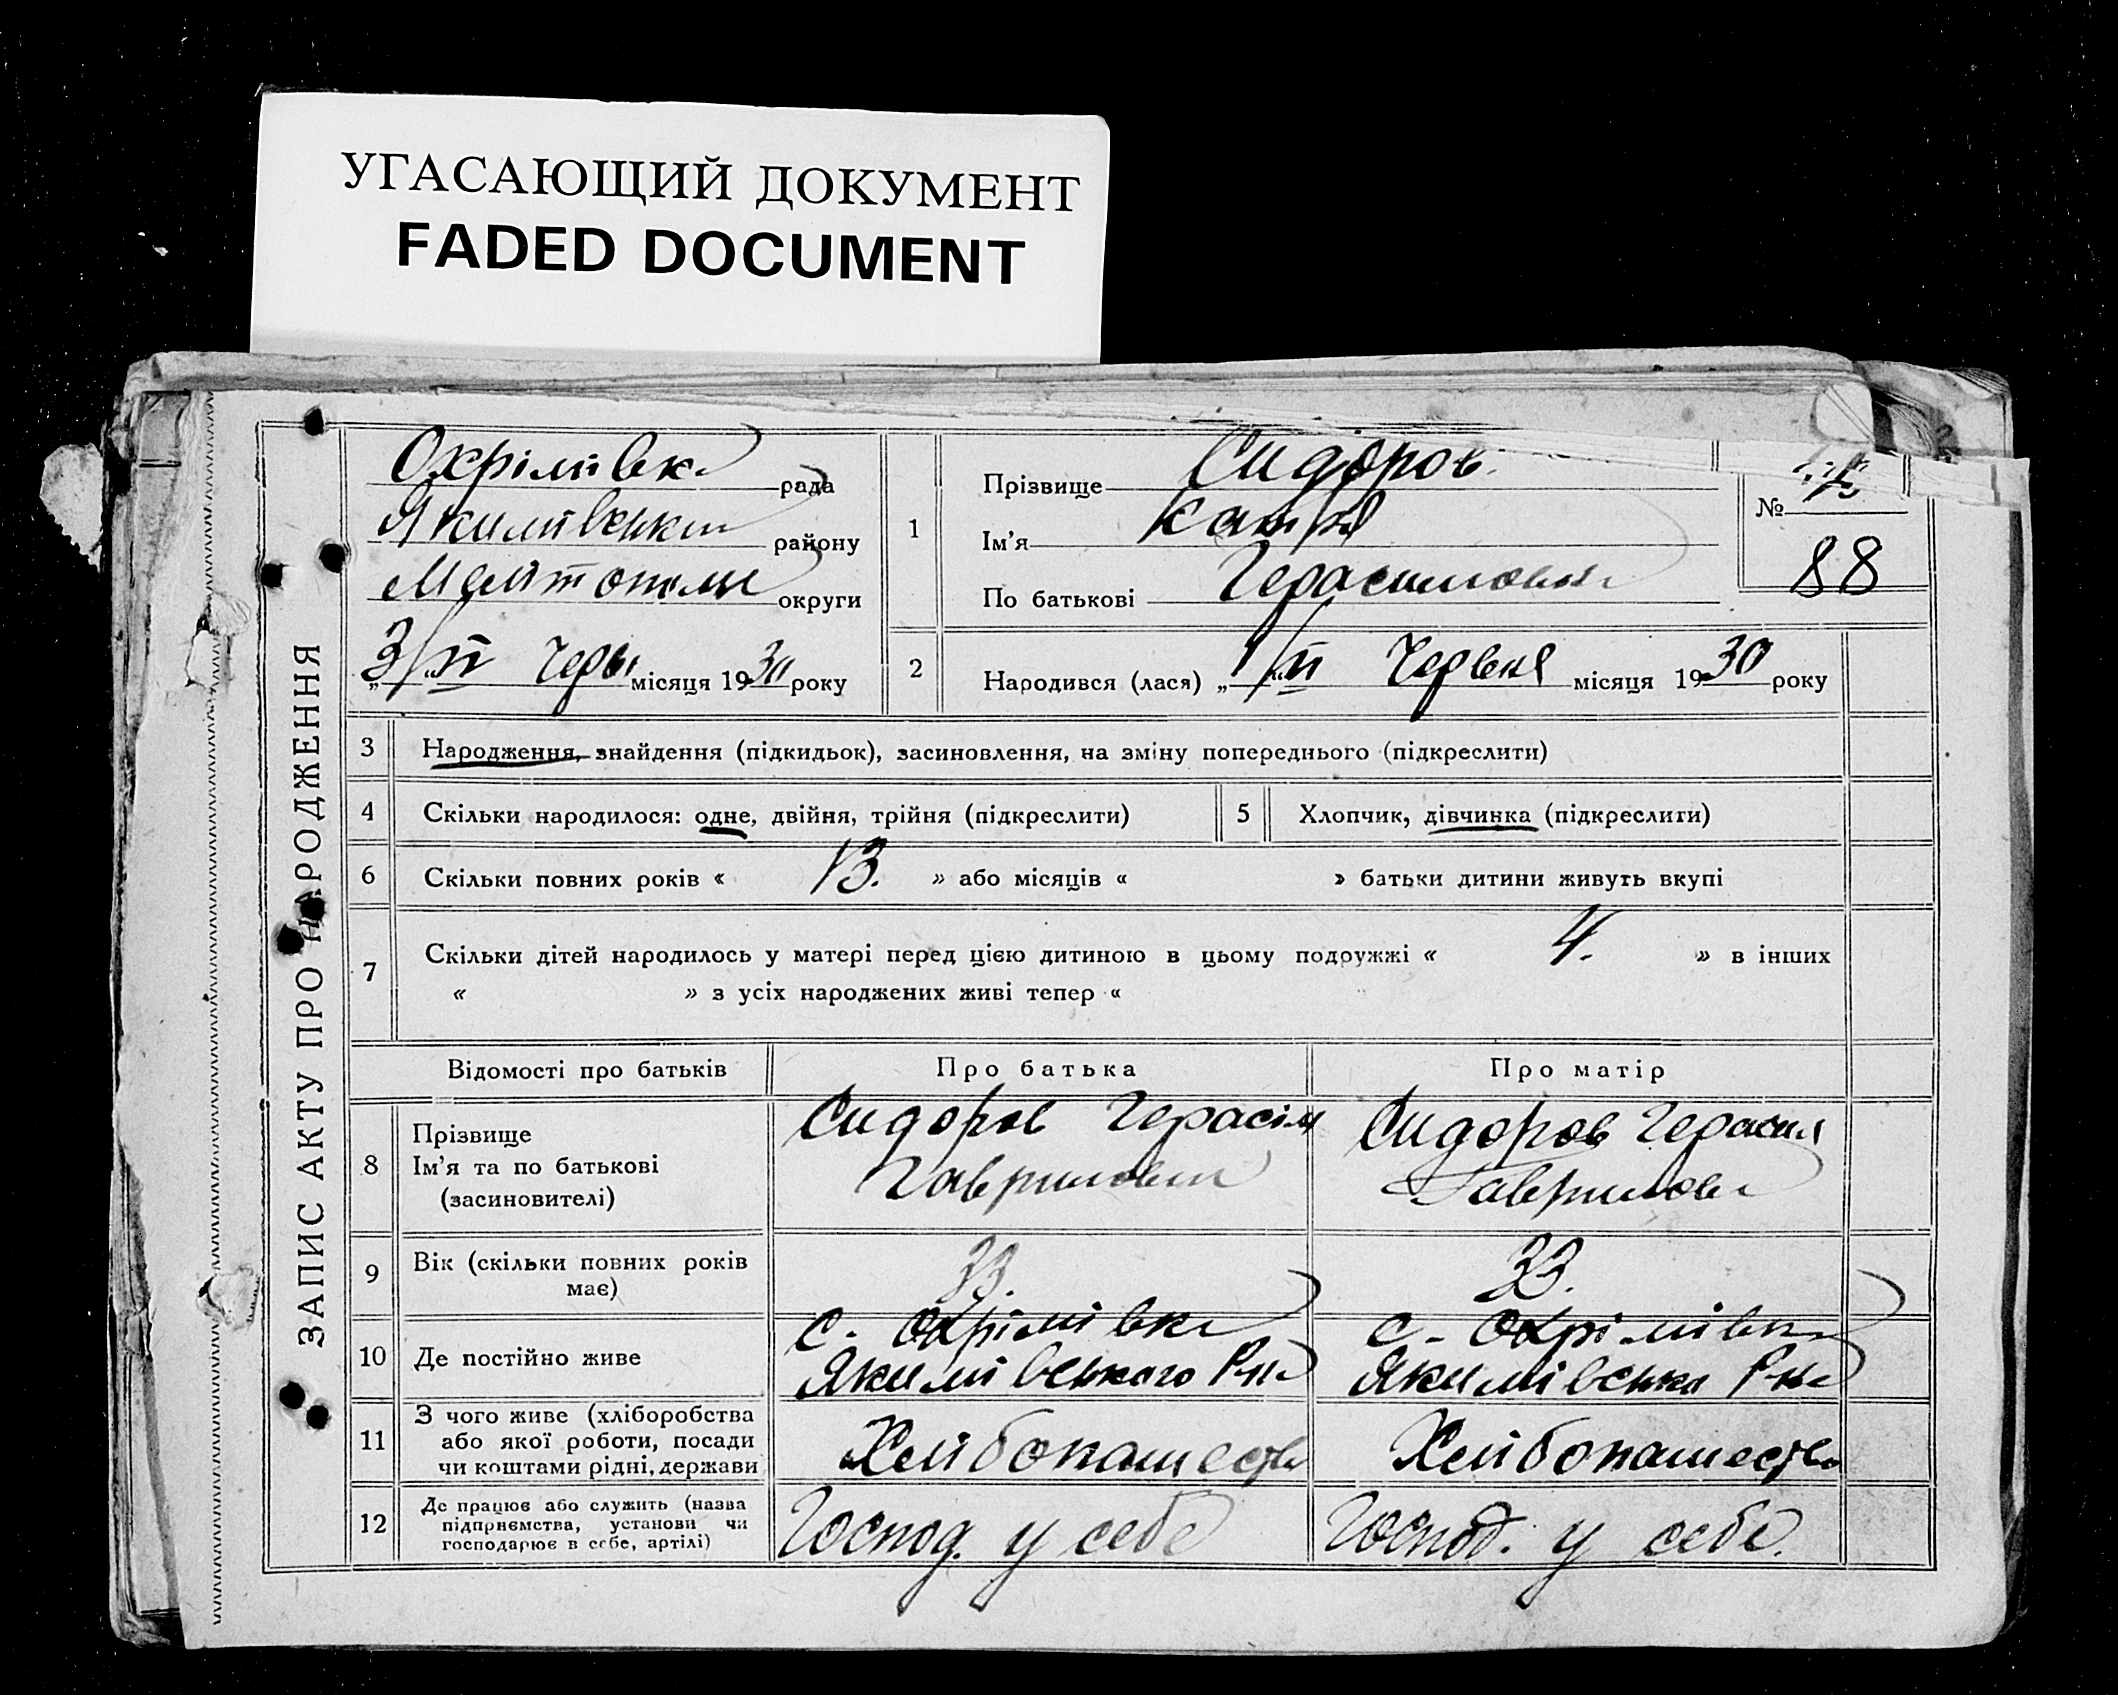 УГАСАЮЩИЙ ДОКУМЕНТ
FADED DOCUMENT
ЗАПИС АКТУ ПРО НАРОДЖЕННЯ
Охрімівка рада
району
округи
3/VI Черв. місяця 1930 року
1
Прізвище Сидоров
Ім'я Катря
По батькові Герасимовна
№
88
2
Народився (лася) „ 1/VI “ Червня місяця 1930 року
3 Народження, знайдення (підкидьок), засиновлення, на зміну попереднього (підкреслити)
4 Скільки народилося: одне, двійня, трійня (підкреслити)
5 Хлопчик, дівчинка (підкреслити)
6 Скільки повних років « 13. » або місяців « » батьки дитини живуть вкупі
7 Скільки дітей народилось у матері перед цією дитиною в цьому подружжі « 4. » в інших
« » з усіх народжених живі тепер «
Відомості про батьків Про батька Про матір
8 Прізвище
Ім'я та по батькові
(засиновителі)
Сидоров Герасім
Гаврилович
Сидоров Герасим
9 Вік (скільки повних років
має)
33.
33.
10 Де постійно живе
с. Охрімівка
Якимівського Р-на
с. Охрімівка
Якимівська Р-на
11 З чого живе (хліборобства
або якої роботи, посади
чи коштами рідні, держави
Хлібопашество
Хлібопашество
12 Де працює або служить (назва
підприємства, установи чи
господарює в себе, артілі)
Господ. у себе
Господ. у себе.